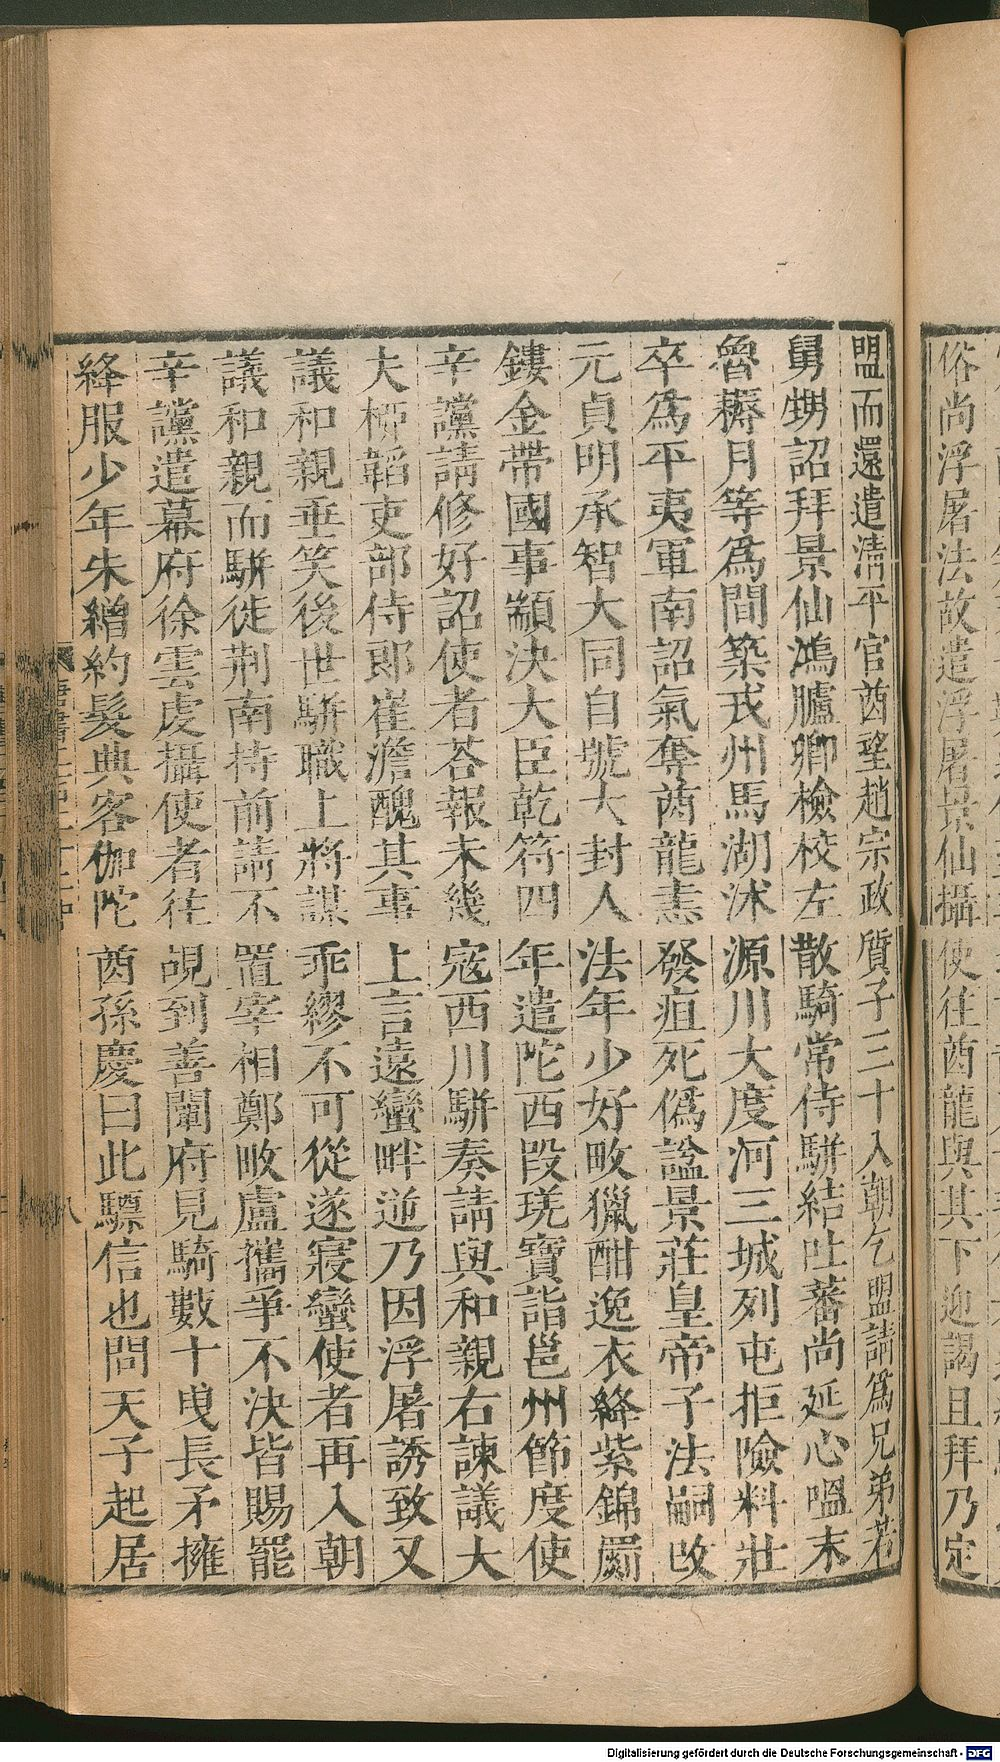 俗尚浮屠法故遣浮屠景仙攝使往酋龍與其下迎謁且拜乃定
盟而還遣淸平官酋望趙宗政質子三十入朝乞盟請爲兄弟若
舅甥詔拜景仙鴻臚卿檢校左散騎常侍駢結吐蕃尚延心嗢末
魯耨月等爲間築戎州馬湖沭源川大度河三城列屯拒險料壯
卒爲平夷軍南詔氣奪酋龍恚發疽死僞諡景莊皇帝子法嗣改
元貞明承智大同自號大封人法年少好畋獵酣逸衣絳紫錦罽
鏤金帶國事顓決大臣乾符四年遣陀西段𤥻寶詣邕州節度使
辛讜請修好詔使者荅報未幾寇西川駢奏請與和親右諫議大
夫柳韜吏部侍郎崔澹醜其事上言遠蠻畔逆乃因浮屠誘致又
議和親垂笑後世駢職上將謀乖繆不可從遂寢蠻使者再入朝
議和親而駢徙荆南持前請不置宰相鄭畋盧攜爭不決皆賜罷
辛讜遣幕府徐雲虔攝使者往覘到善闡府見騎數十曳長矛擁
絳服少年朱繒約髮典客伽陀酋孫慶曰此驃信也問天子起居
八
Digitalisierung gefördert durch die Deutsche Forschungsgemeinschaft - DFG